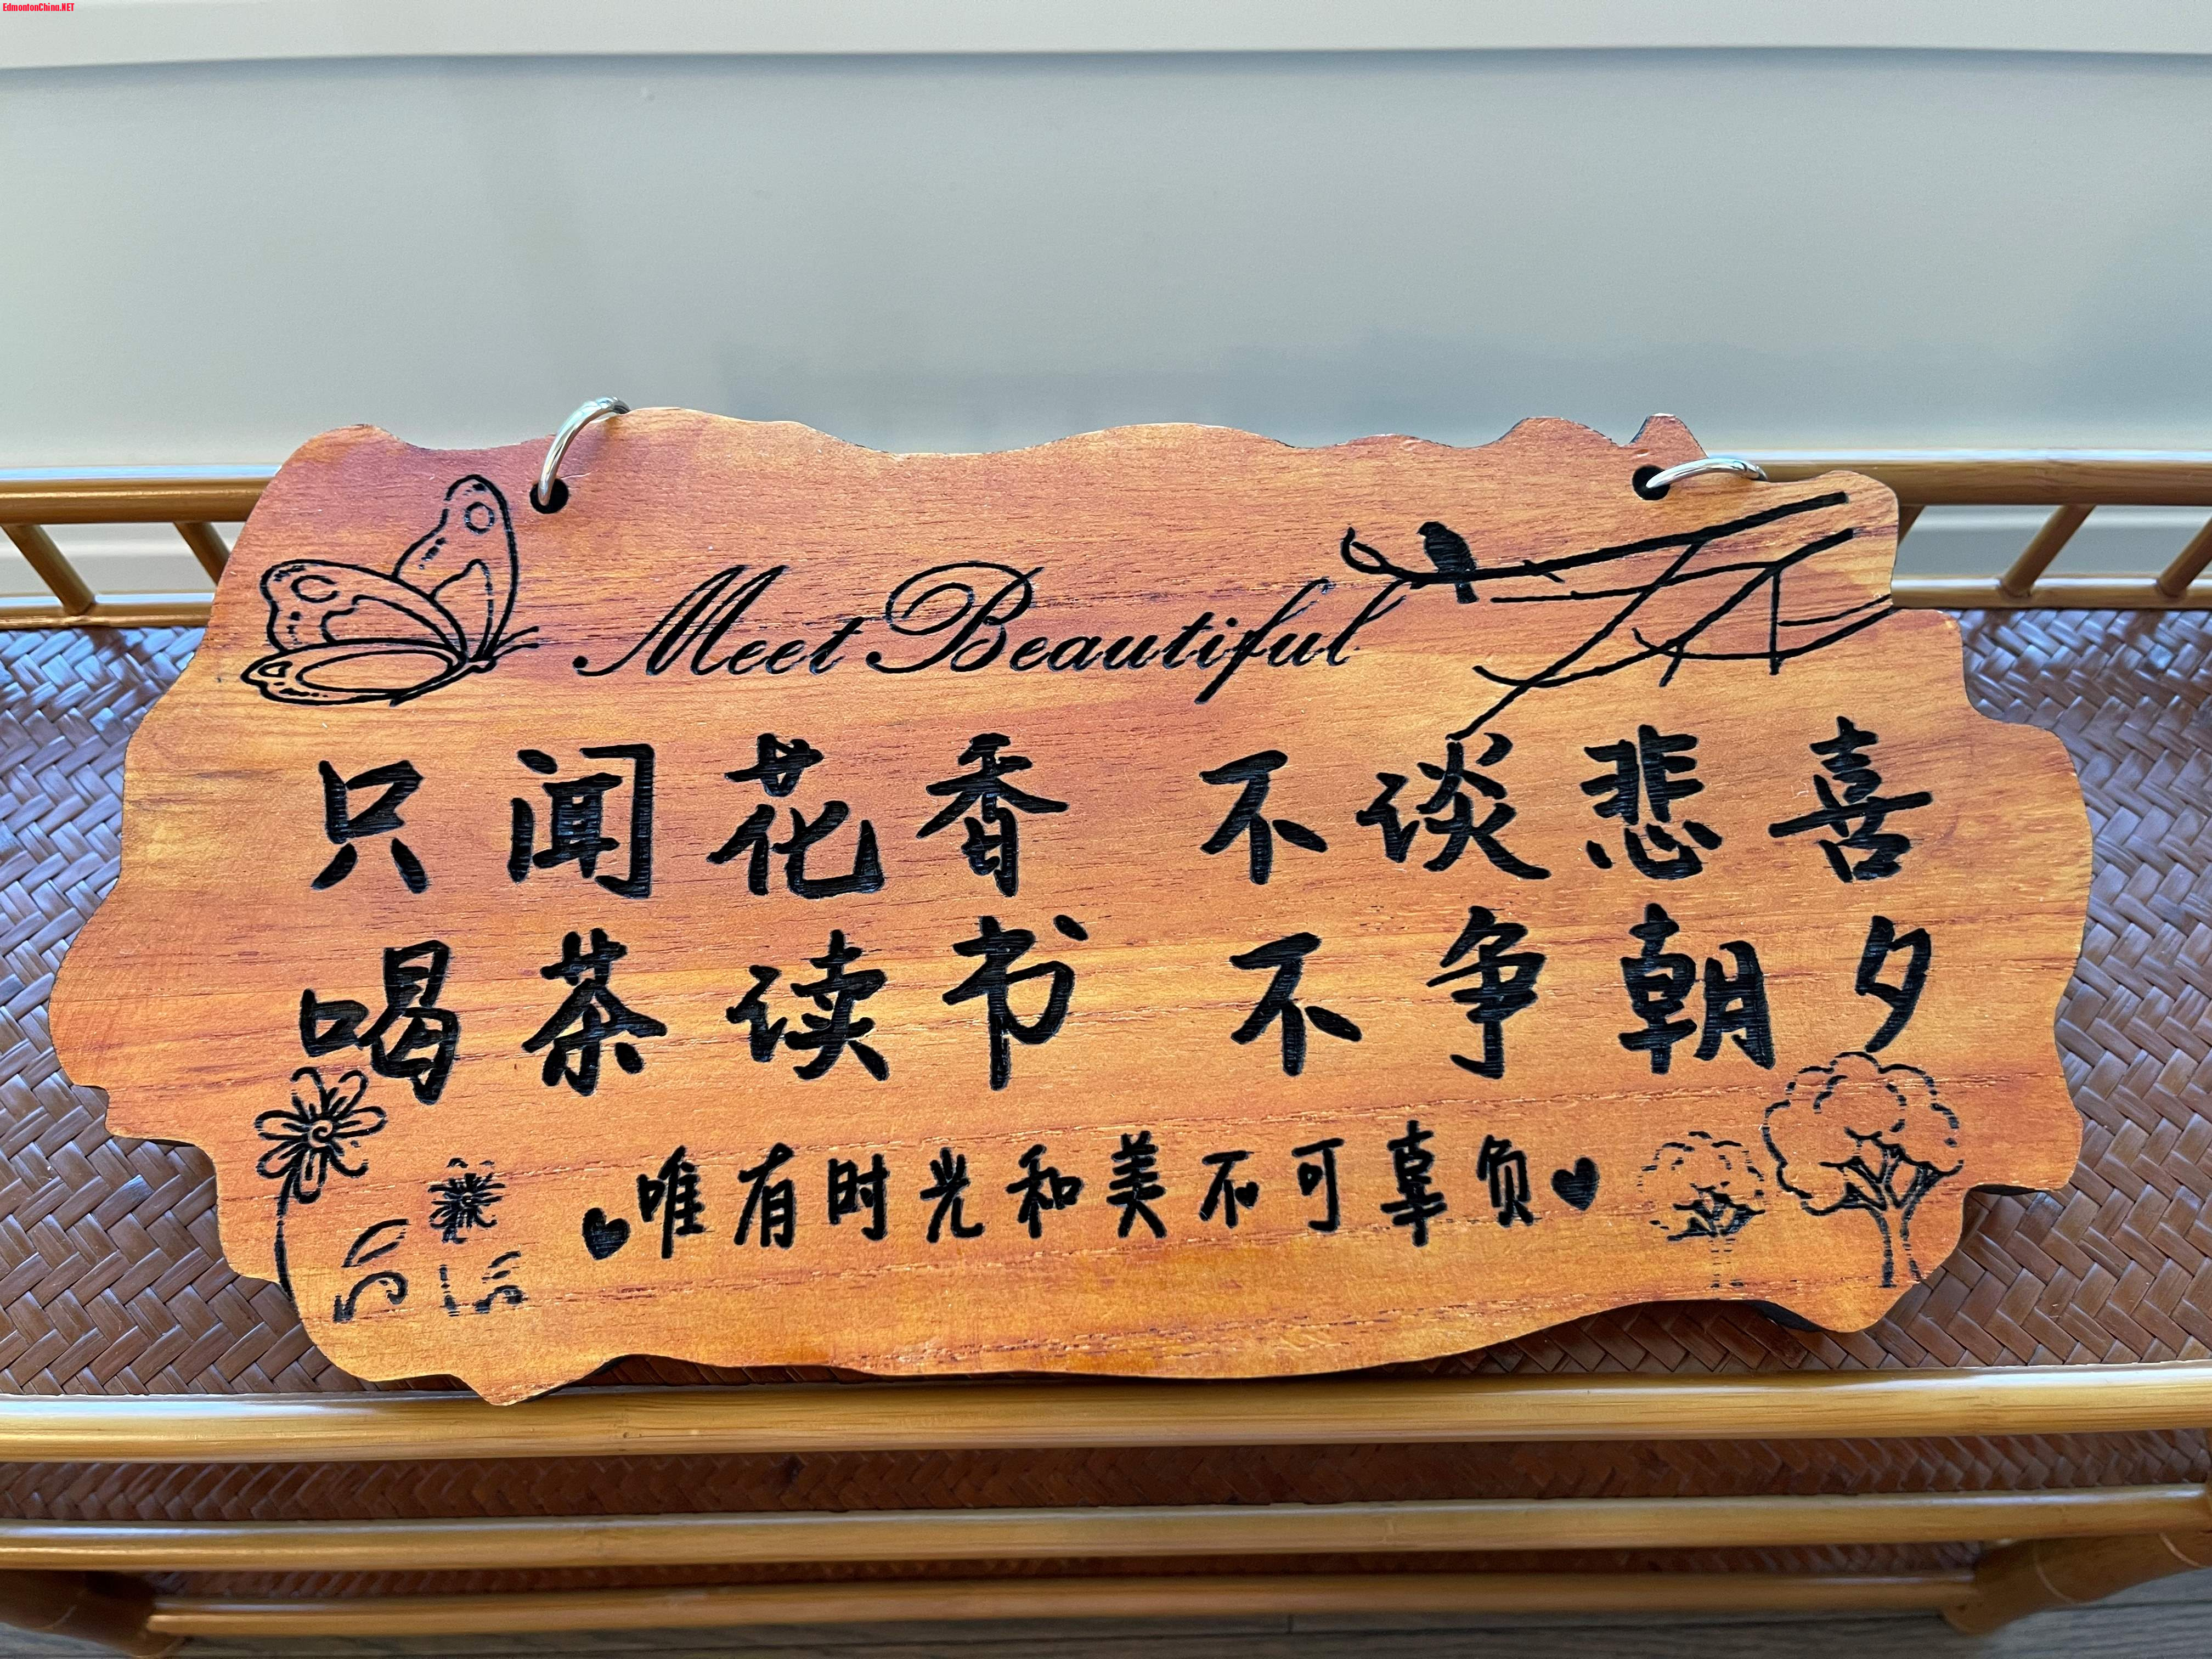 EdmontonChina.NET
Meet Beautiful
只闻花香 不谈悲喜
喝茶读书 不争朝夕
唯有时光和美不可辜负